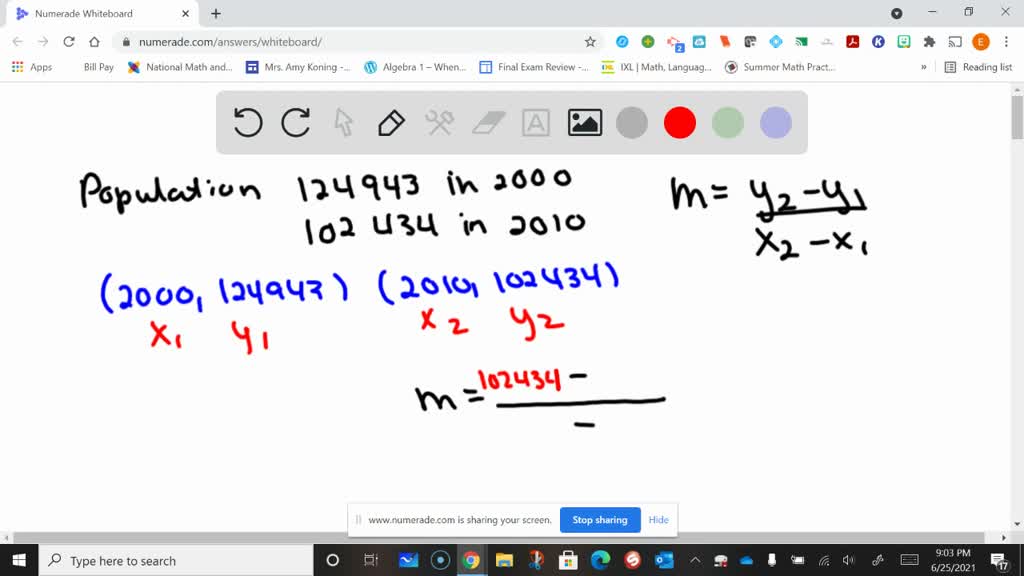 Numerade Whiteboard
numerade.com/answers/whiteboard/
2
E
Apps Bill Pay National Math and... Mrs. Amy Koning -... Algebra 1 – When... Final Exam Review -... IXL | Math, Languag... Summer Math Pract... » Reading list
A
Population 124943 in 2000
102434 in 2010
m = y₂ - y₁
x₂ - x₁
(2000, 124943) (2010, 102434)
x₁ y₁ x₂ y₂
m = 102434 -
-
www.numerade.com is sharing your screen. Stop sharing Hide
Type here to search
9:03 PM
6/25/2021
17